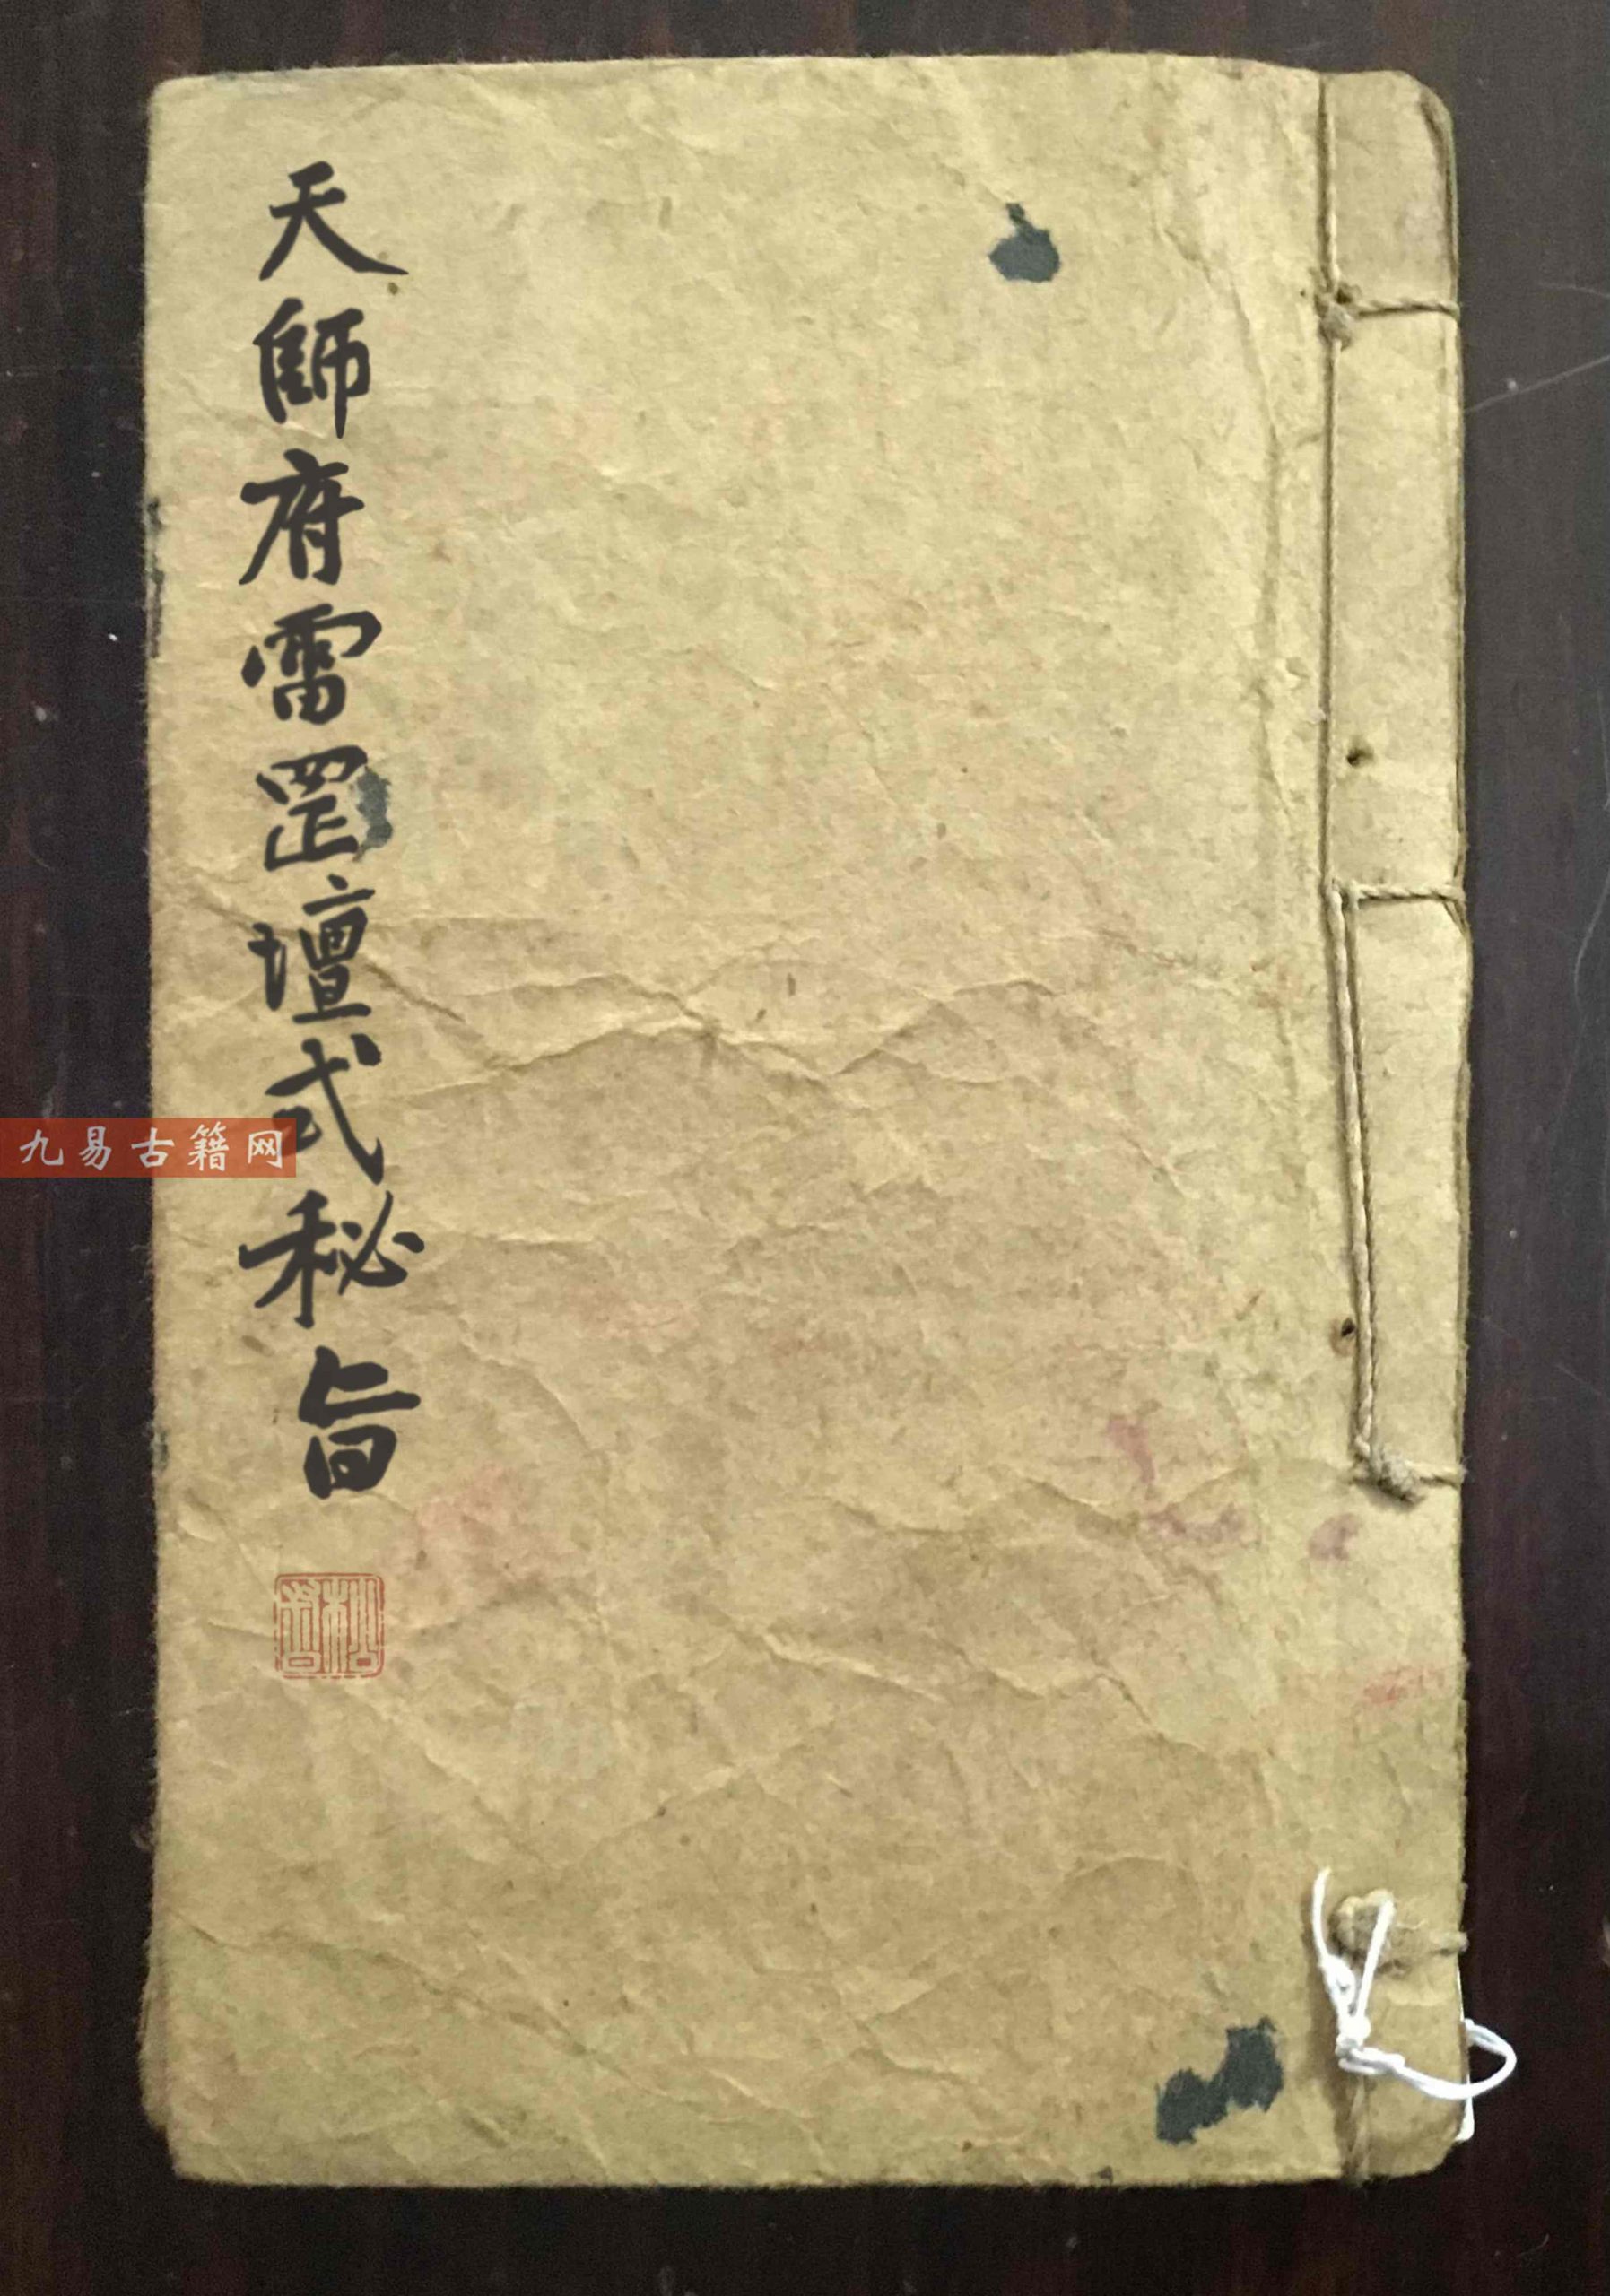 天師府雷罡壇式秘旨
九易古籍网